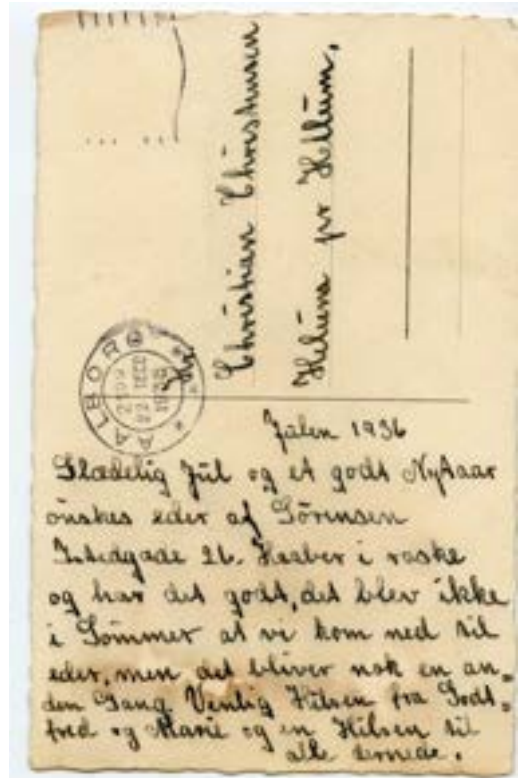 AALBORG
22 DEC
1936
Hr
Christian Christensen
Hellum pr Hellum.
Julen 1936
Glædelig Jul og et godt Nytaar
ønskes eder af Sørensen
Istedgade 26. Haaber i raske
og har det godt, det blev ikke
i Sommer at vi kom ned til
eder, men det bliver nok en an=
den Gang Venlig Hilsen fra Godt=
fred og Marie og en Hilsen til
alle dernede.